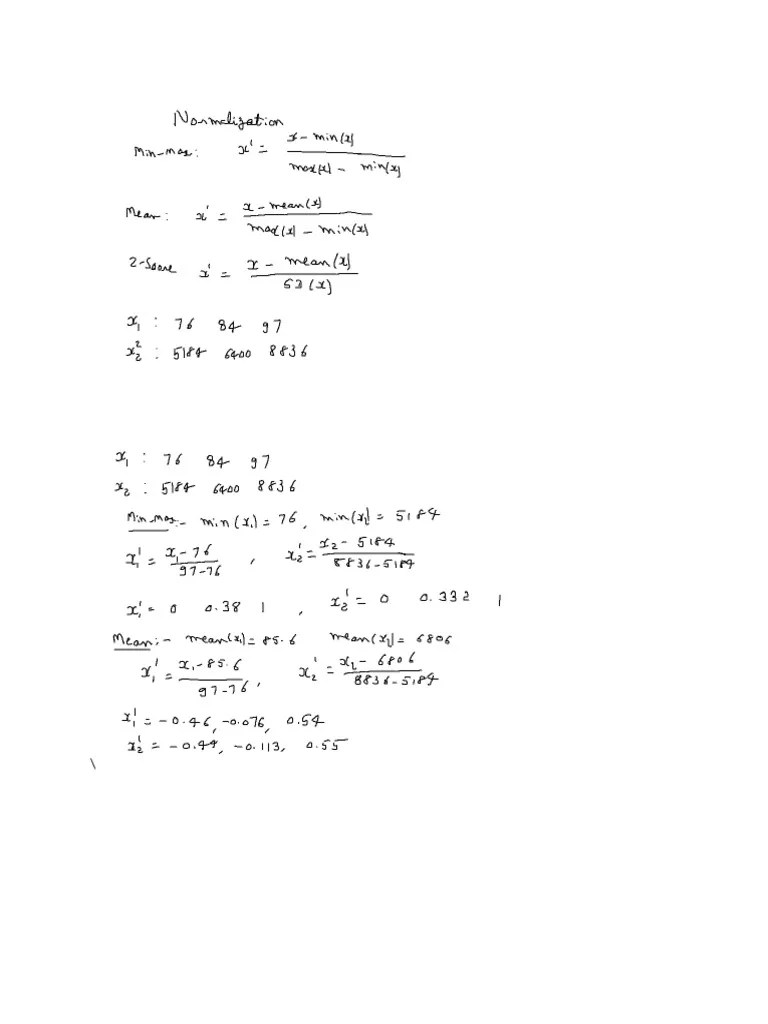 Normalization
Min-max: x' = x - min(x) / max(x) - min(x)
Mean: x' = x - mean(x) / max(x) - min(x)
Z-Score x' = x - mean(x) / SD(x)
x₁ : 76 84 97
x₂² : 5184 6400 8836
x₁ : 76 84 97
x₂ : 5184 6400 8836
Min-max:- min(x₁) = 76, min(x₂) = 5184
x₁' = x₁ - 76 / 97-76 , x₂' = x₂ - 5184 / 8836-5184
x₁' = 0 0.38 1 , x₂' = 0 0.332 1
Mean:- mean(x₁) = 85.6 mean(x₂) = 6806
x₁' = x₁ - 85.6 / 97-76 , x₂' = x₂ - 6806 / 8836-5184
x₁' = -0.46, -0.076, 0.54
x₂' = -0.44, -0.113, 0.55